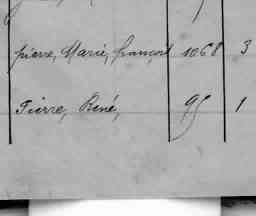 pierre, Marie, françois 1068 3
Pierre, René, 95 1